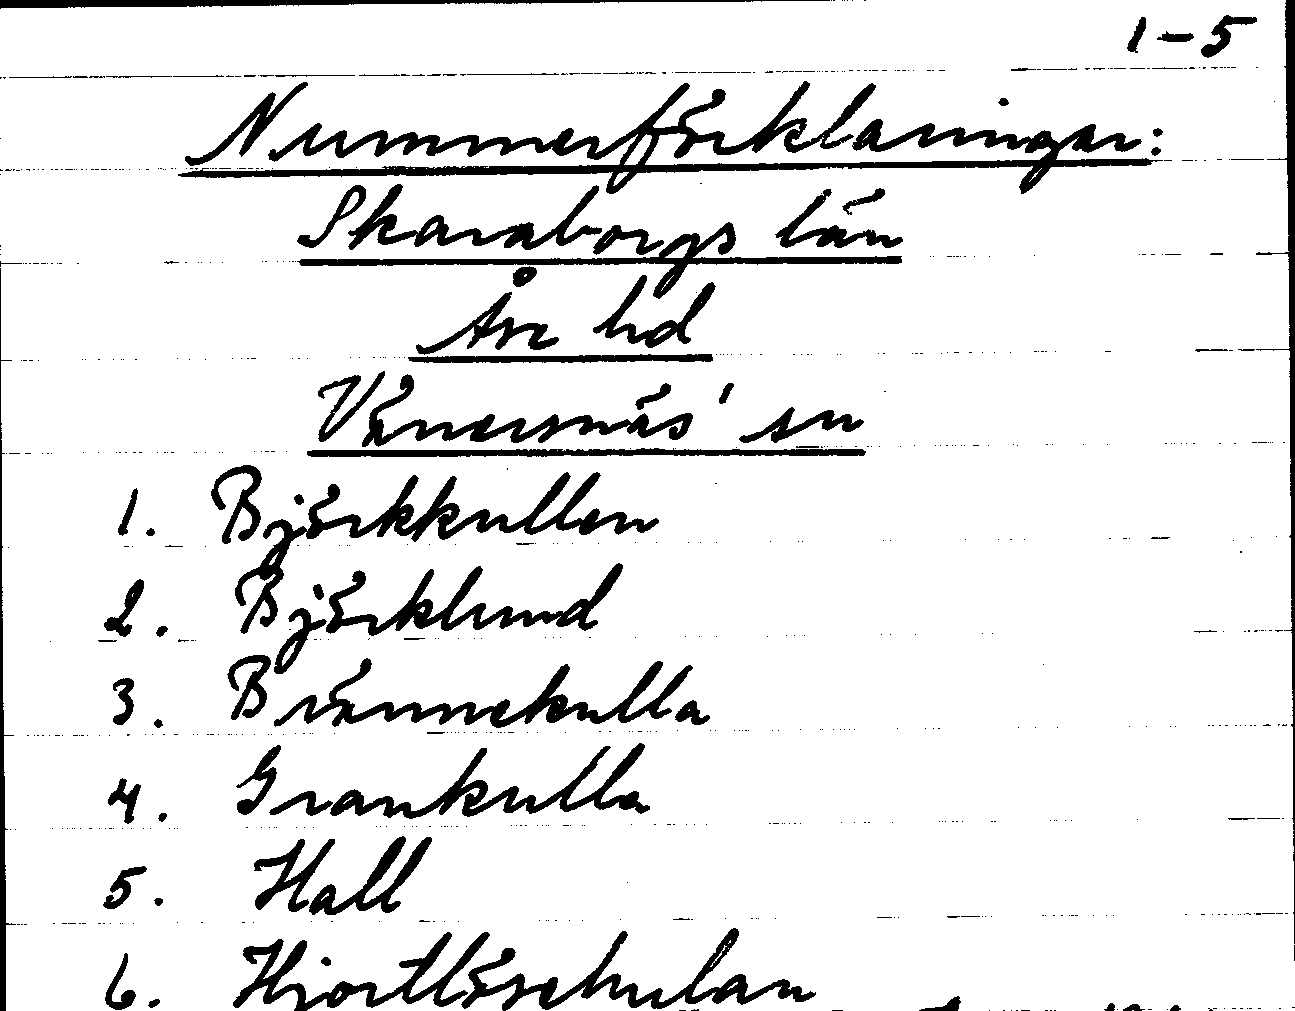 1-5
Nummerförklaringar:
Skaraborgs län
Åse hd
Vänersnäs' sn
1. Björkkullen
2. Björklund
3. Brännekulla
4. Grankulla
5. Hall
6.